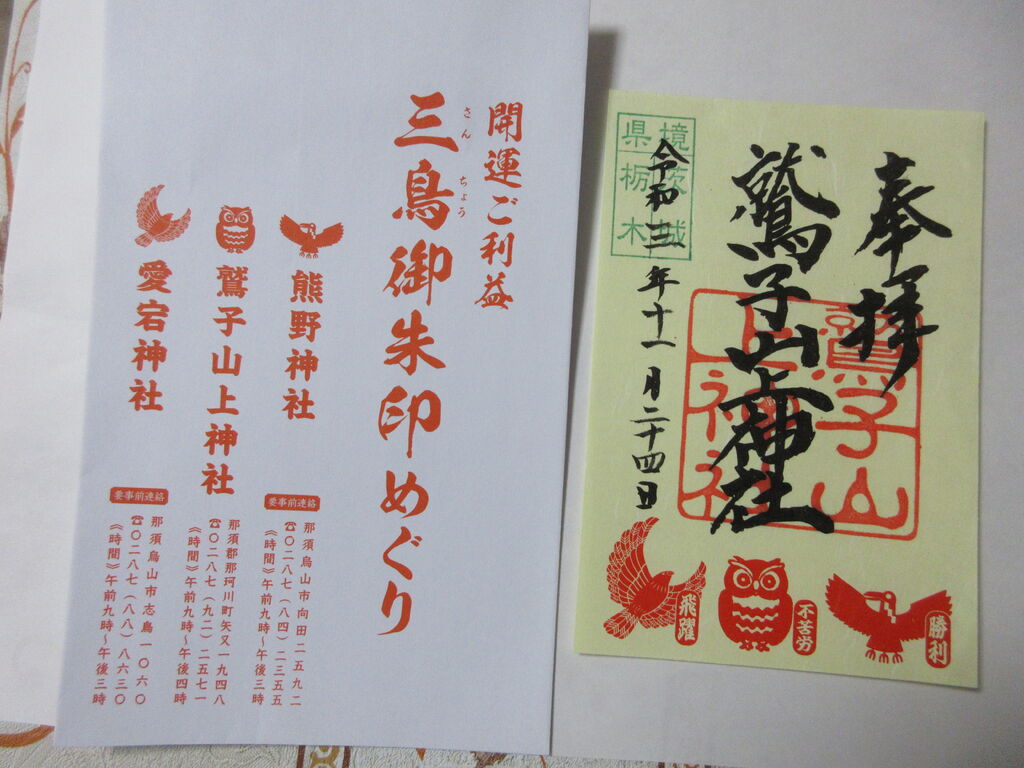 開運ご利益
三鳥御朱印めぐり
さん
ちょう
熊野神社
要事前連絡
那須烏山市向田二五九二
☎〇二八七(八四)二三五五
《時間》午前九時〜午後三時
鷲子山上神社
那須郡那珂川町矢又一九四八
☎〇二八七(九二)二五七一
《時間》午前九時〜午後四時
愛宕神社
要事前連絡
那須烏山市志鳥一〇六〇
☎〇二八七(八八)八六三〇
《時間》午前九時〜午後三時
奉拝
鷲子山上神社
令和三年十一月二十四日
境茨城
県栃木
鷲子山
上神社
勝利
不苦労
飛躍